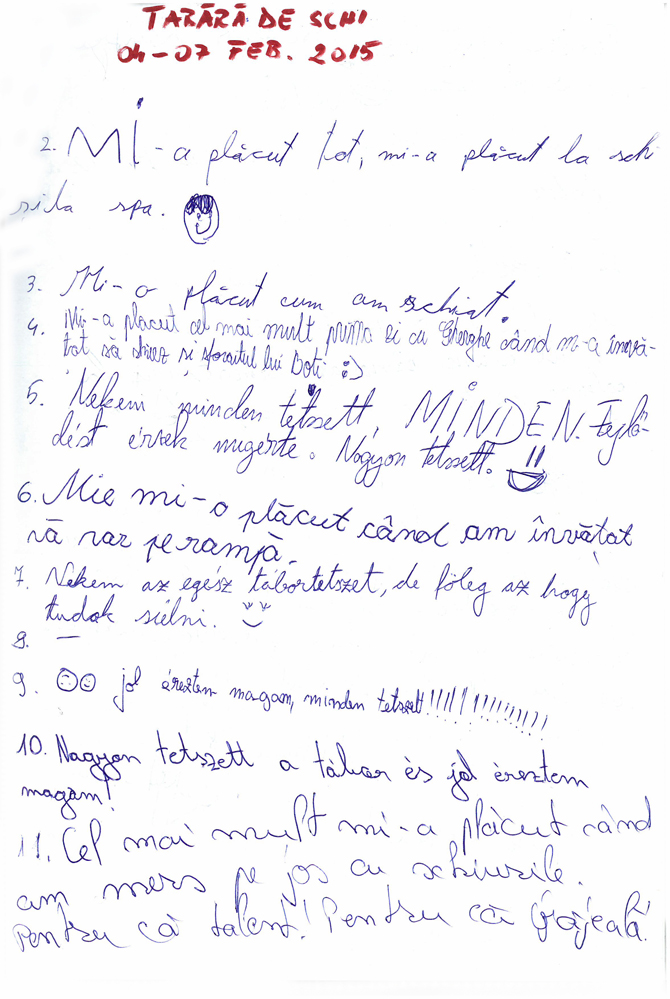 TABĂRĂ DE SCHI
04-07 FEB. 2015
2. Mi-a plăcut tot, mi-a plăcut la sch
si la spa.
3. Mi-a plăcut cum am schiat.
4. Mi-a placut cel mai mult prima zi cu Gherghe când m-a învă-
tat să shiez si sforaitul lui Boti :)
5. Nekem minden tetszett, MINDEN. Fejlő-
dést érzek magérte. Nagyon tetszett.
6. Mie mi-a plăcut când am învățat
să sar pe rampă.
7. Nekem az egész tábortetszet, de főleg az hogy
tudok síelni.
8. —
9. jol éreztem magam, minden tetszett!!!!!!!!!!!!!!!
10. Nagyon tetszett a tábor és jol éreztem
magam!
11. Cel mai mult mi-a plăcut când
am mers pe jos cu schiurile.
Pentru că talent! Pentru că